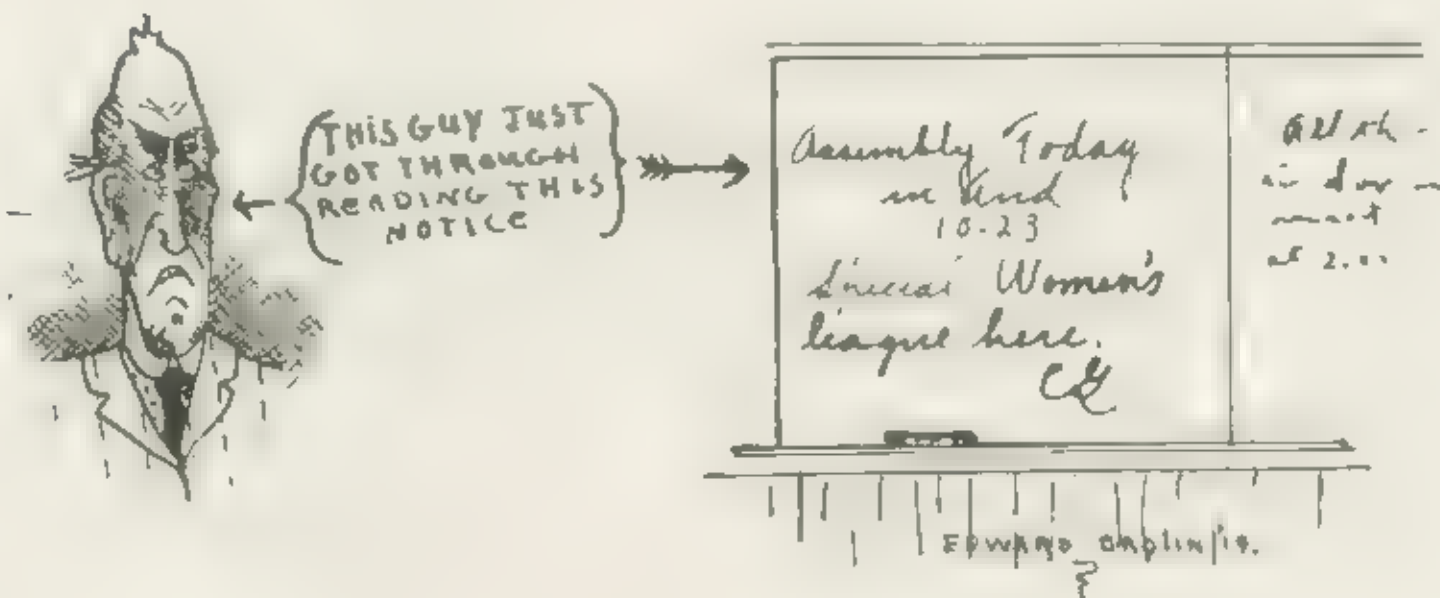 THIS GUY JUST
GOT THROUGH
READING THIS
NOTICE
Assembly Today
in Aud
10.23
Women's
league here.
All
at 2.
EDWARD